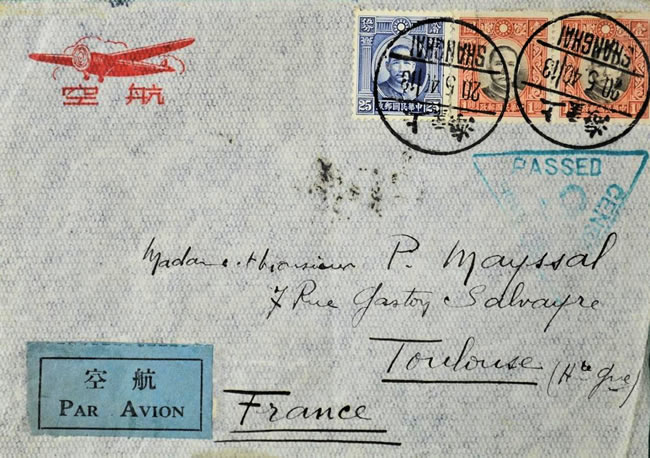 空航
25
25
1
1
SHANGHAI
20.5.40/13
上海
SHANGHAI
20.5.40/13
上海
PASSED
CENSOR
Madame & Monsieur P. Mayssal
7 Rue Gaston Salvayre
Toulouse (Hte Gne)
France
空航
PAR AVION